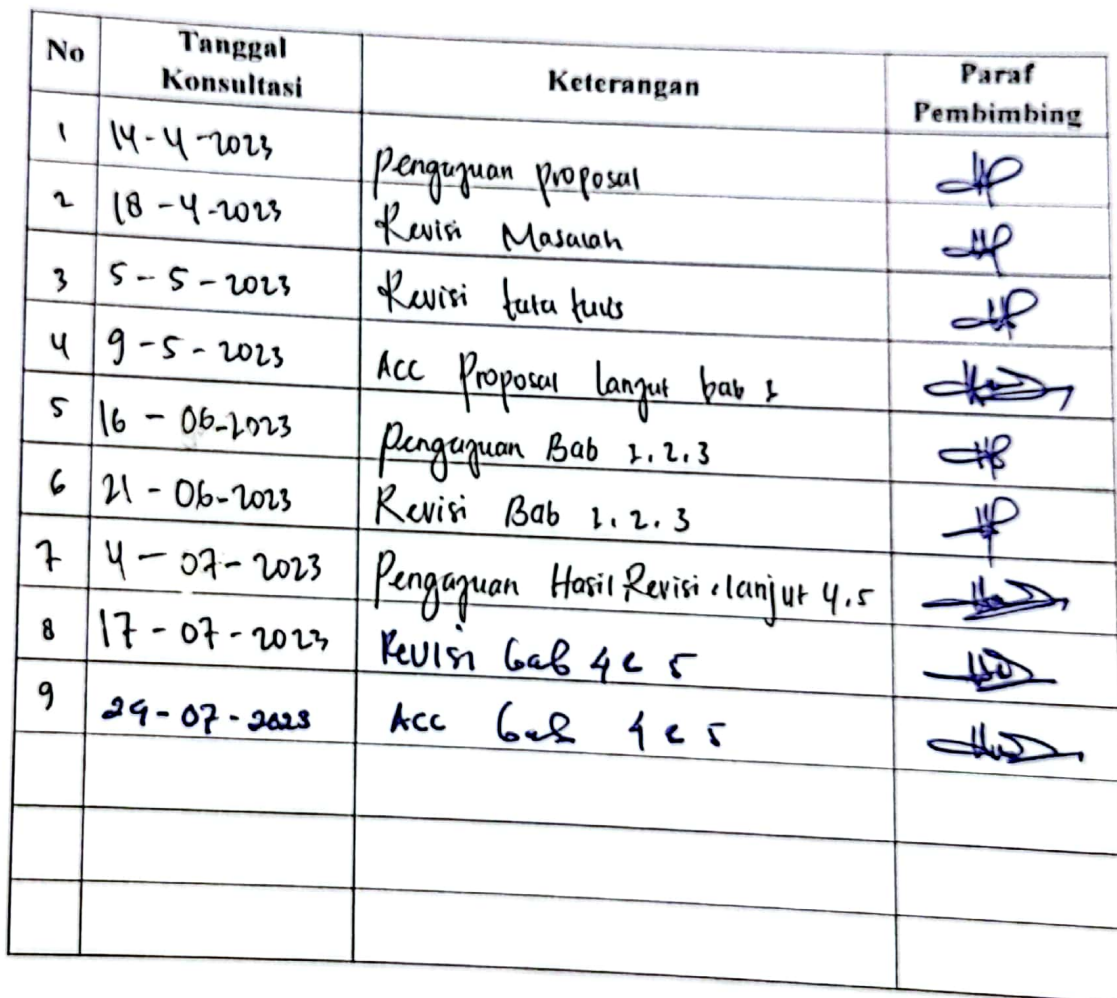 No Tanggal Konsultasi Keterangan Paraf Pembimbing
1 14-4-2023 Pengajuan proposal
2 18-4-2023 Revisi Masalah
3 5-5-2023 Revisi tata tulis
4 9-5-2023 Acc Proposal lanjut bab 1
5 16-06-2023 Pengajuan Bab 1.2.3
6 21-06-2023 Revisi Bab 1.2.3
7 4-07-2023 Pengajuan Hasil Revisi lanjut 4.5
8 17-07-2023 Revisi bab 4 & 5
9 24-07-2023 Acc bab 4 & 5